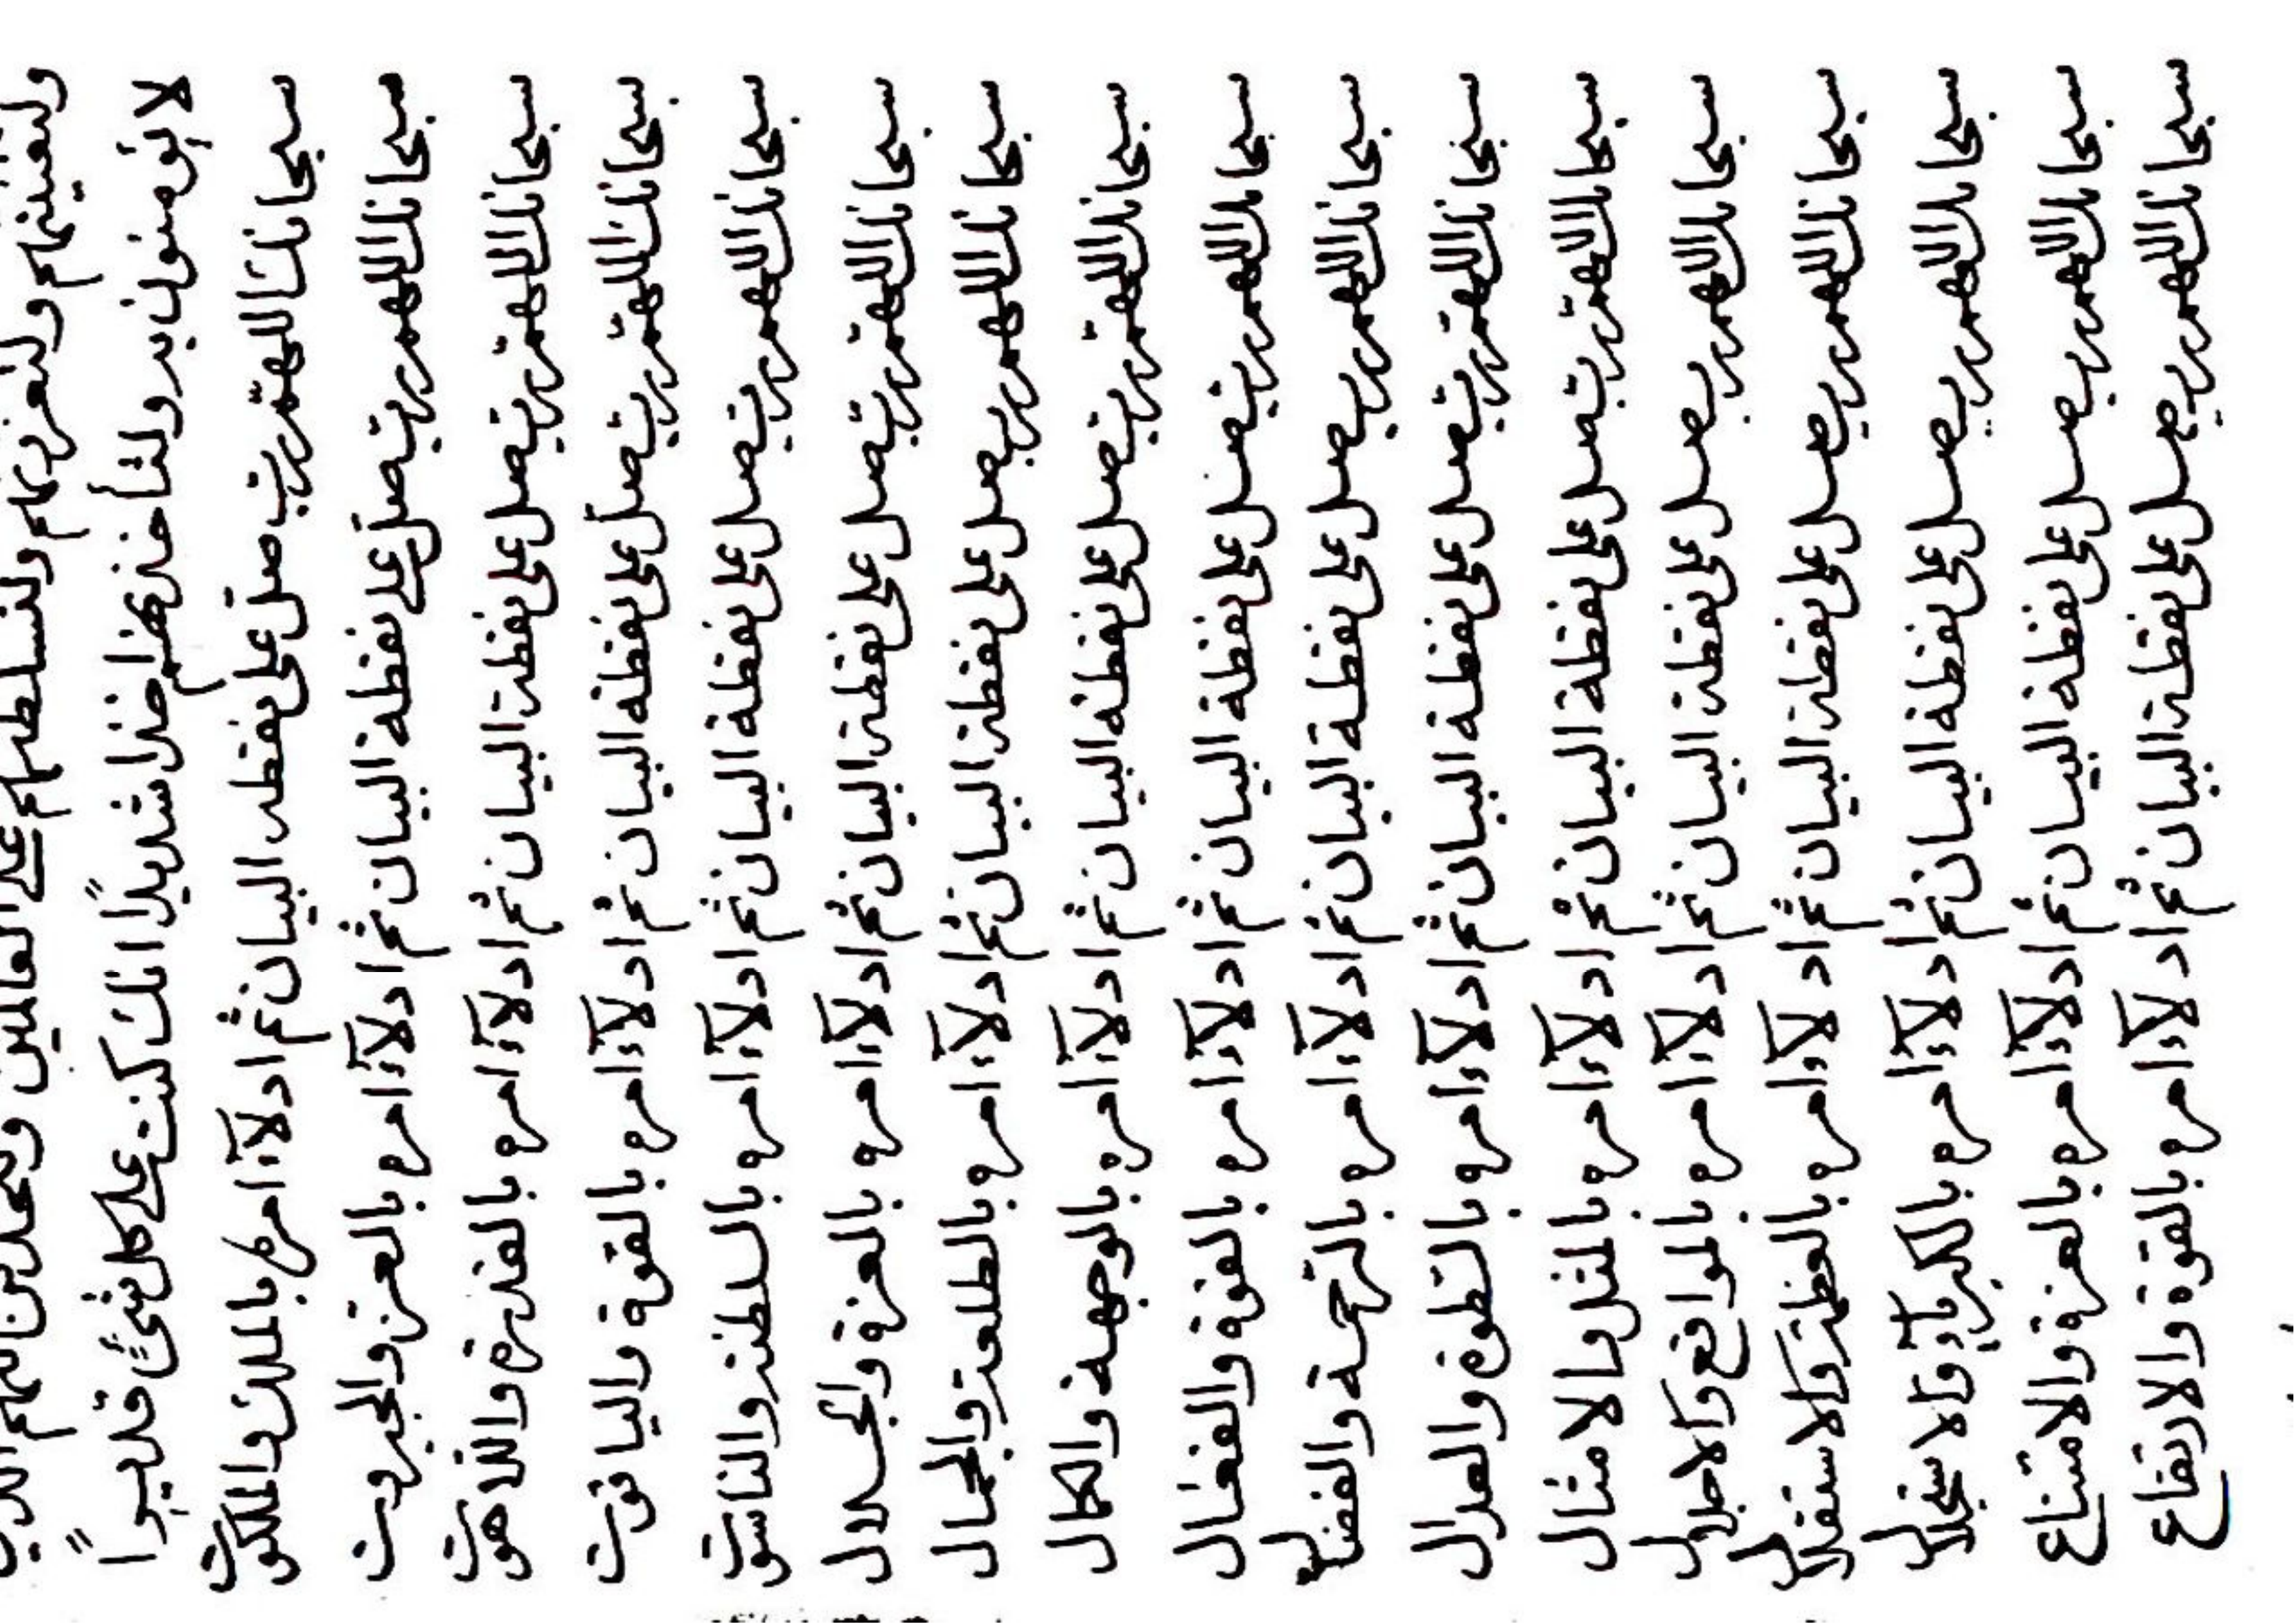 ولتعيننهم ولتعززنهم ولتسلطنهم على العالمين
لا يؤمنون به ولتأخذنهم اخذا شديدًا انك كنت على كل شئ قديراً
سبحانك اللهم رب صل على نقطة البيان ثم ادلآء امره بالملك والملكوت
سبحانك اللهم رب صل على نقطة البيان ثم ادلآء امره بالعز والجبروت
سبحانك اللهم رب صل على نقطة البيان ثم ادلآء امره بالقدرة واللاهوت
سبحانك اللهم رب صل على نقطة البيان ثم ادلآء امره بالقوة والياقوت
سبحانك اللهم رب صل على نقطة البيان ثم ادلآء امره بالسلطنة والناسوت
سبحانك اللهم رب صل على نقطة البيان ثم ادلآء امره بالعزة والجلال
سبحانك اللهم رب صل على نقطة البيان ثم ادلآء امره بالطلعة والجمال
سبحانك اللهم رب صل على نقطة البيان ثم ادلآء امره بالوجهة والكمال
سبحانك اللهم رب صل على نقطة البيان ثم ادلآء امره بالقوة والفعال
سبحانك اللهم رب صل على نقطة البيان ثم ادلآء امره بالرحمة والفضال
سبحانك اللهم رب صل على نقطة البيان ثم ادلآء امره بالسطوة والعدال
سبحانك اللهم رب صل على نقطة البيان ثم ادلآء امره بالمثل والامثال
سبحانك اللهم رب صل على نقطة البيان ثم ادلآء امره بالمواقع والاجلال
سبحانك اللهم رب صل على نقطة البيان ثم ادلآء امره بالعظمة والاستقلال
سبحانك اللهم رب صل على نقطة البيان ثم ادلآء امره بالكبريآء والاستجلال
سبحانك اللهم رب صل على نقطة البيان ثم ادلآء امره بالعزة والامتناع
سبحانك اللهم رب صل على نقطة البيان ثم ادلآء امره بالقوة والارتفاع